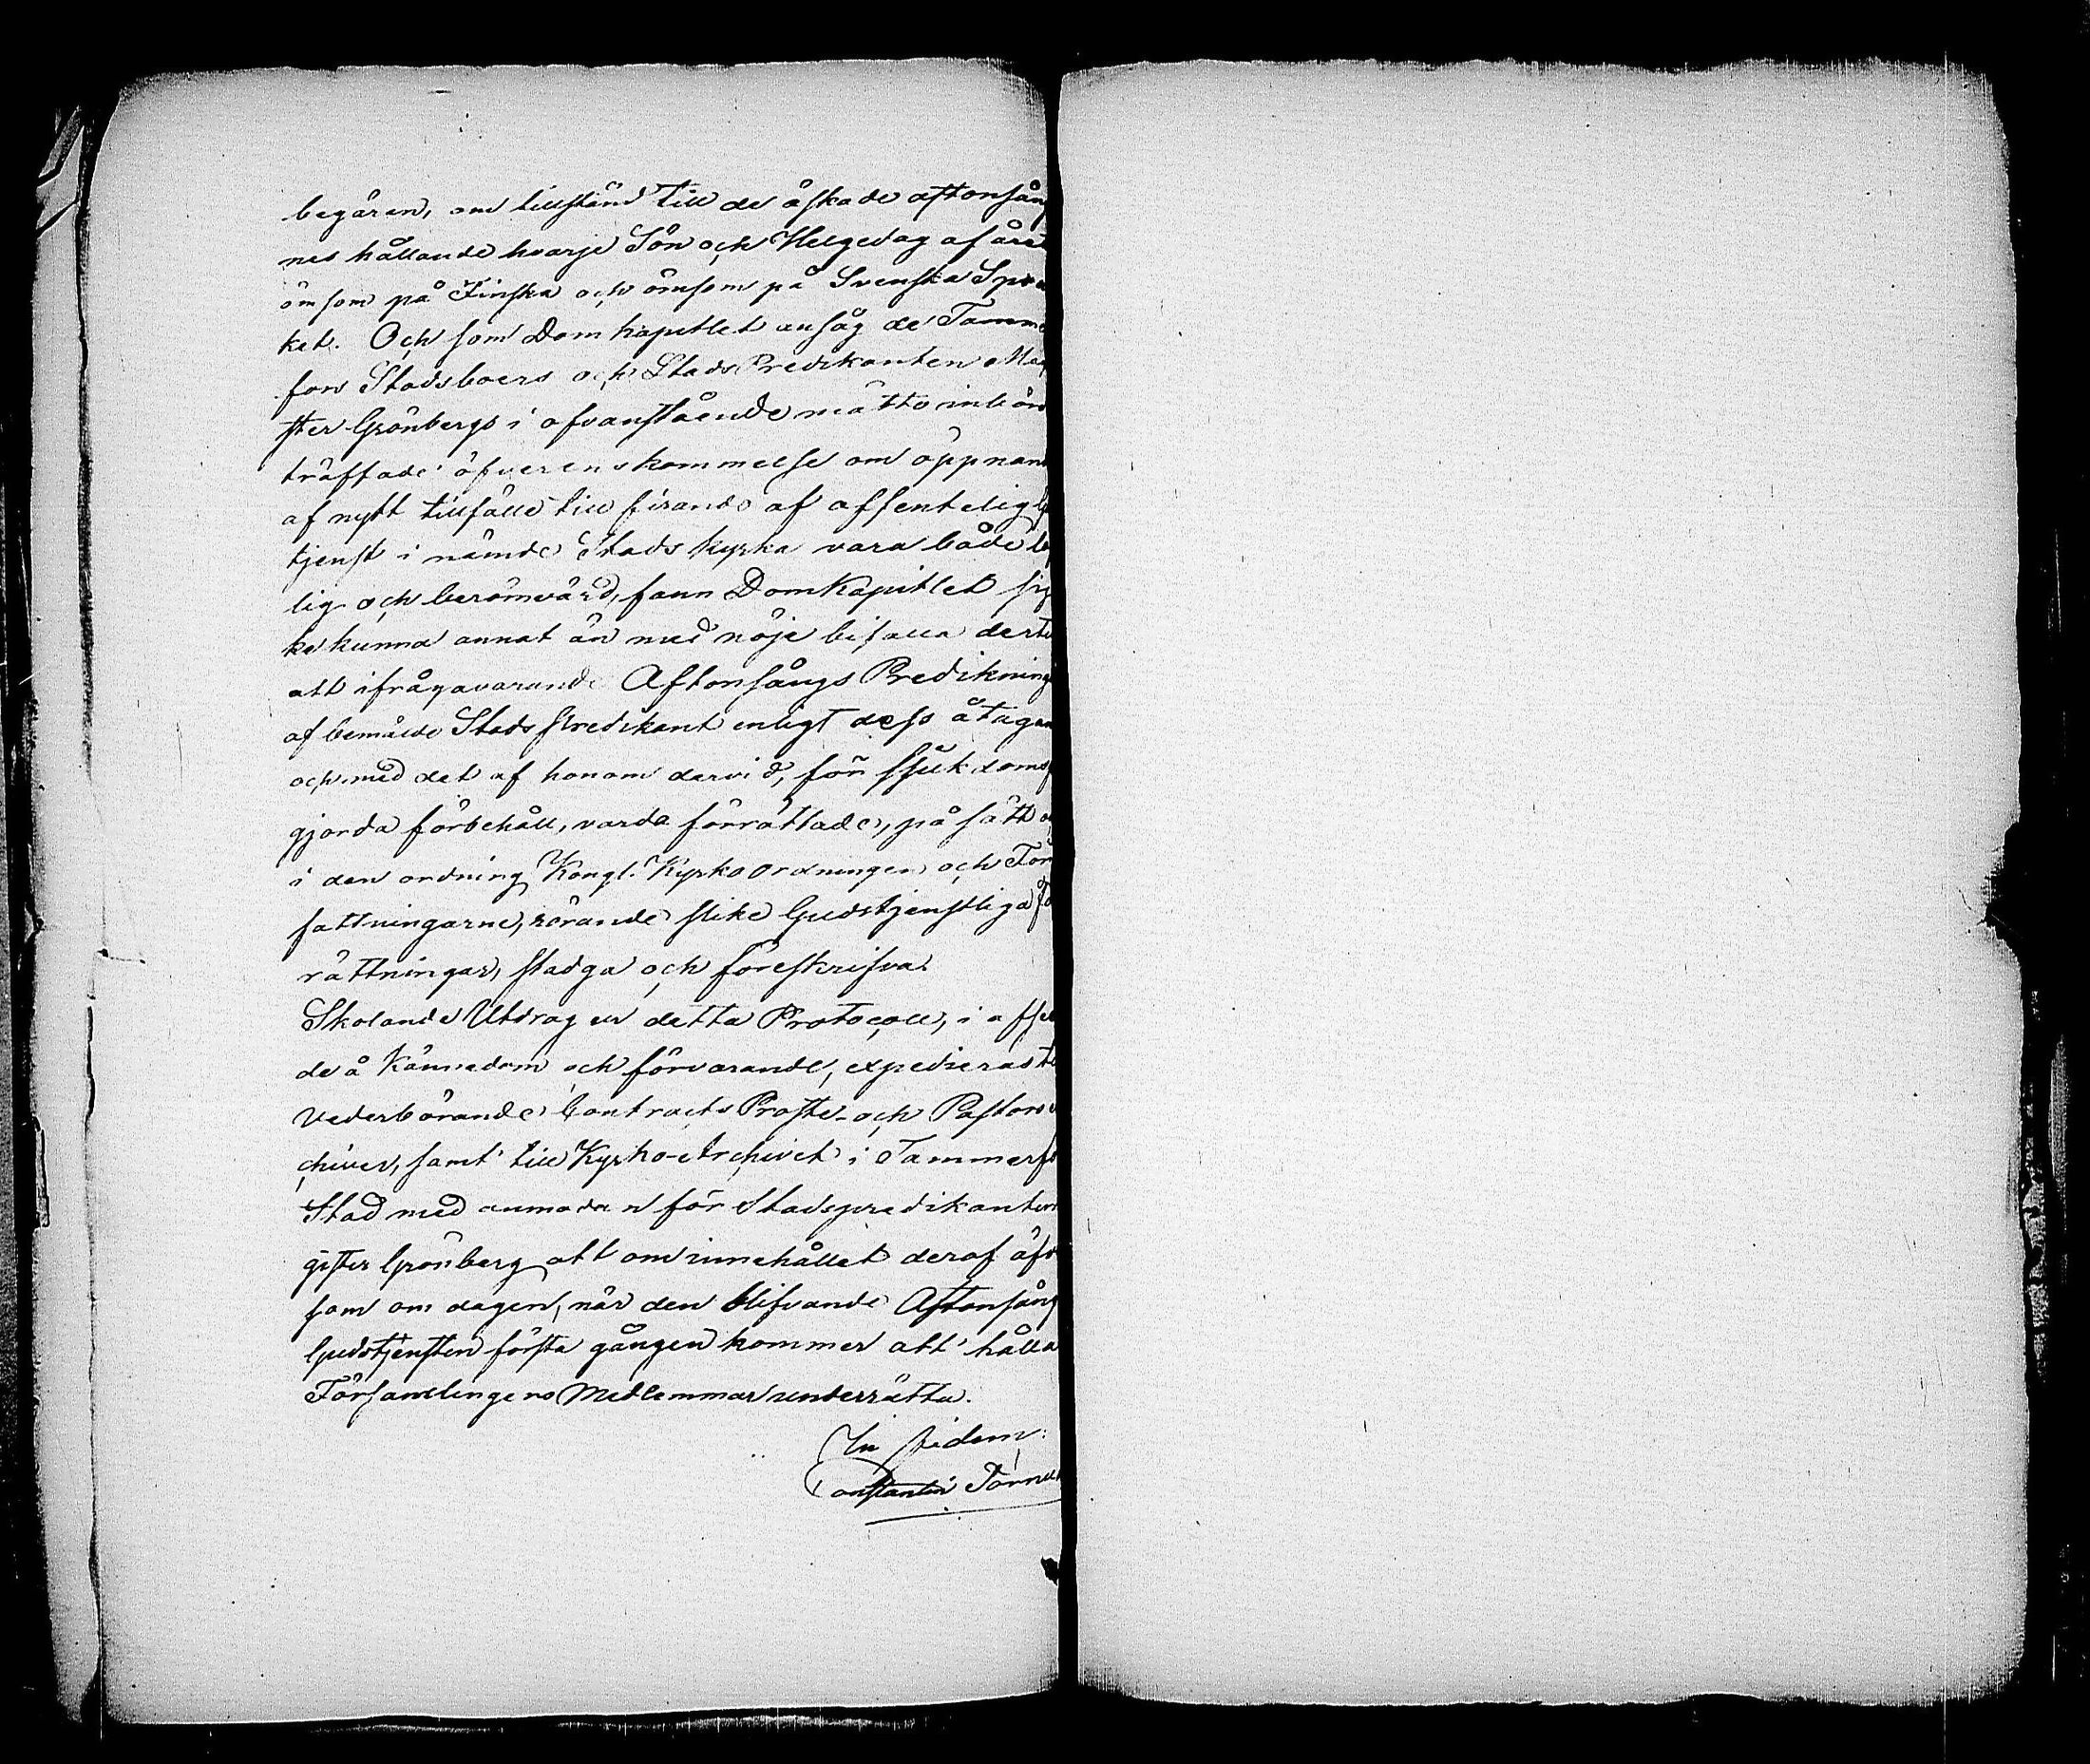 begäran, om tillstånd till de äskade aftonsån
nes hållande hvarje Sön och Helgedag af året
ömsom på Finska och ömsom på Svenska Språ
ket. Och som Domkapitlet ansåg de Tamme
fors Stadsboers och Stads Predikanten Ma
ster Grönbergs i ofvanstående måtto inbör
träffade öfverenskommelse om öppnan
af nytt tillfälle till firande af offentelig G
tjenst i nämde Stads kyrka vara både
lig och berömvärd, fann DomKapitlet sig
ke kunna annat än med nöje bifalla dert
att ifrågavarande Aftonsångs Predikning
af bemälde Stads Predikant enligt dess åtagan
och med det af honom dervid, för sjukdoms
gjorda förbehåll, varda förrättade, på sätt o
i den ordning Kongl. Kyrko Ordningen och För
fattningarne, rörande slike Gudstjenstliga fö
rättningar, stadga och föreskrifva.
Skolande Utdrag ur detta Protocoll, i afse
de å kännedom och förvarande, expedieras t
Vederbörande Contracts Proste- och Pastors
chiver, samt till Kyrko-Archivet i Tammerf
Stad med anmodan för Stadspredikanten
gister Grönberg att om innehållet deraf äfv
som om dagen, når den blifvande Aftonsång
Gudstjensten första gången kommer att hålla
Församlingens Medlemmar underrätta.
In fidem:
Constantin Törnu